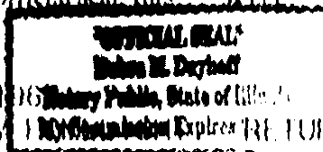 "OFFICIAL SEAL"
M. Dayhoff
Notary Public, State of Illinois
My Commission Expires